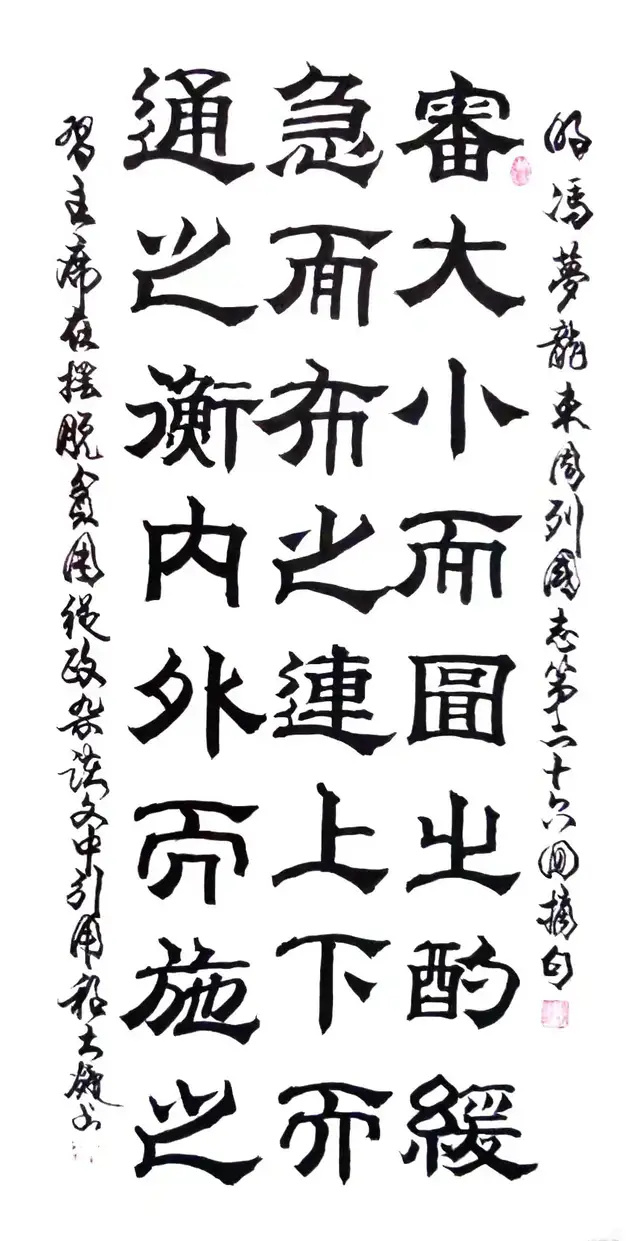 明冯夢龍東周列國志第二十六回摘句
審大小而圖之酌緩
急而布之連上下而
通之衡内外而施之
習主席在摆脱贫困從政杂谈文中引用